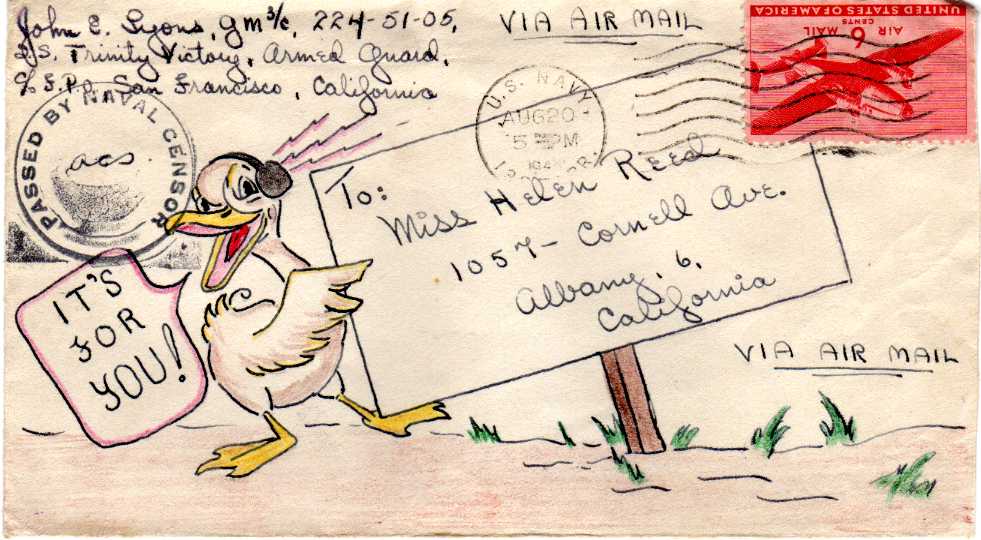 John E. Lyons, GM 3/c, 224-51-05,
S.S. Trinity Victory, Armed Guard,
c/o F.P.O. San Francisco, California
VIA AIR MAIL
UNITED STATES OF AMERICA
AIR 6 MAIL
CENTS
U.S. NAVY
AUG 20
5 PM
PASSED BY NAVAL CENSOR
acs.
To:
Miss Helen Reed
1057 - Cornell Ave.
Albany, 6,
California
IT'S
FOR
YOU!
VIA AIR MAIL